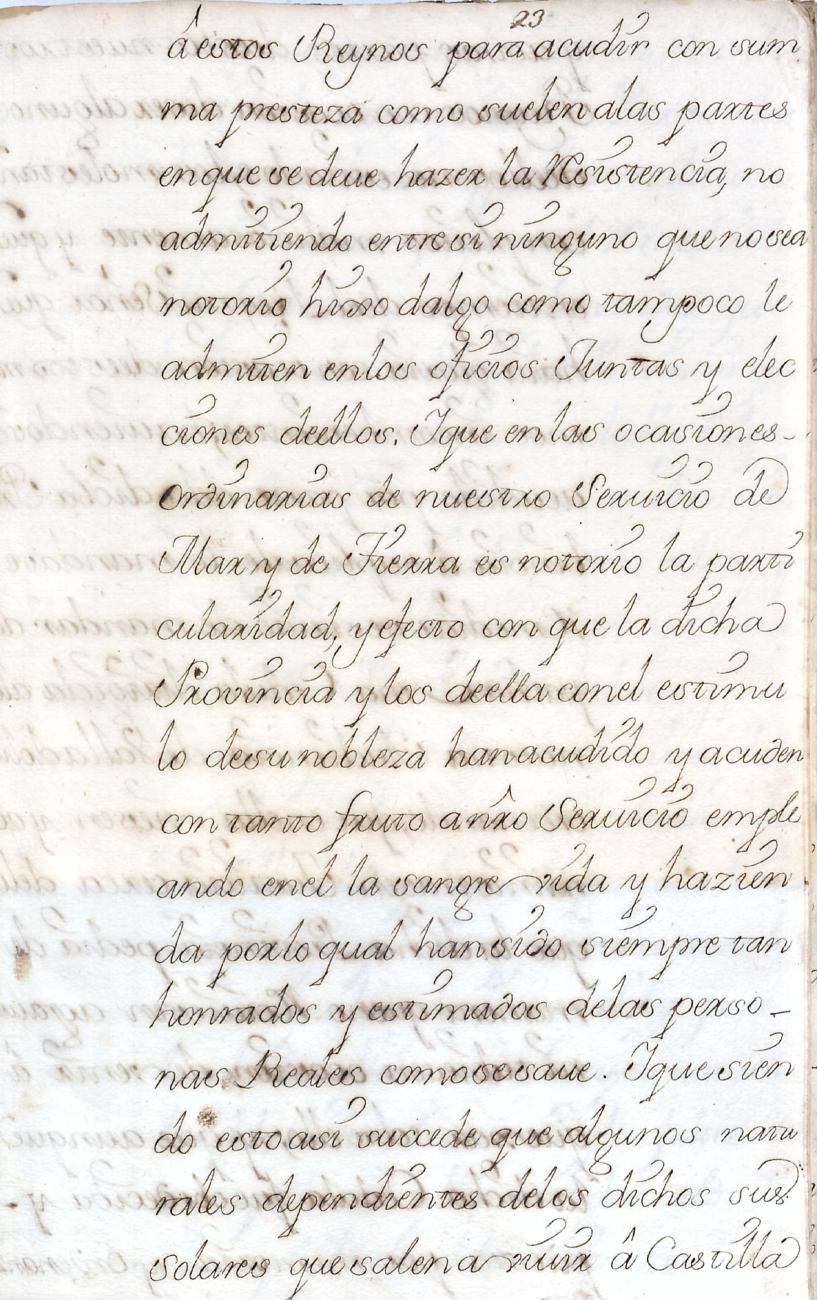 23
â estos Reynos para acudir con sum
ma presteza como suelen alas partes
en que se deue hazer la Resistencia, no
admitiendo entresi ninguno que no sea
notorio hixo dalgo como tampoco le
admiten enlos oficios Juntas y elec
ciones deellos. Ique en las ocasiones-
Ordinarias de nuestro Seruicio de
Mar y de Tierra es notorio la parti
cularidad, y efecto con que la dicha
Provincia y los deella conel estimu
lo desu nobleza han acudido y acuden
con tanto fruto a nr̃o Seruicio emple
ando enel la sangre vida y hazien
da porlo qual han sido siempre tan
honrados y estimados delas perso-
nas Reales como se saue. Ique sien
do esto asi succede que algunos natu
rales dependientes delos dichos sus
solares que salen a viuir â Castilla